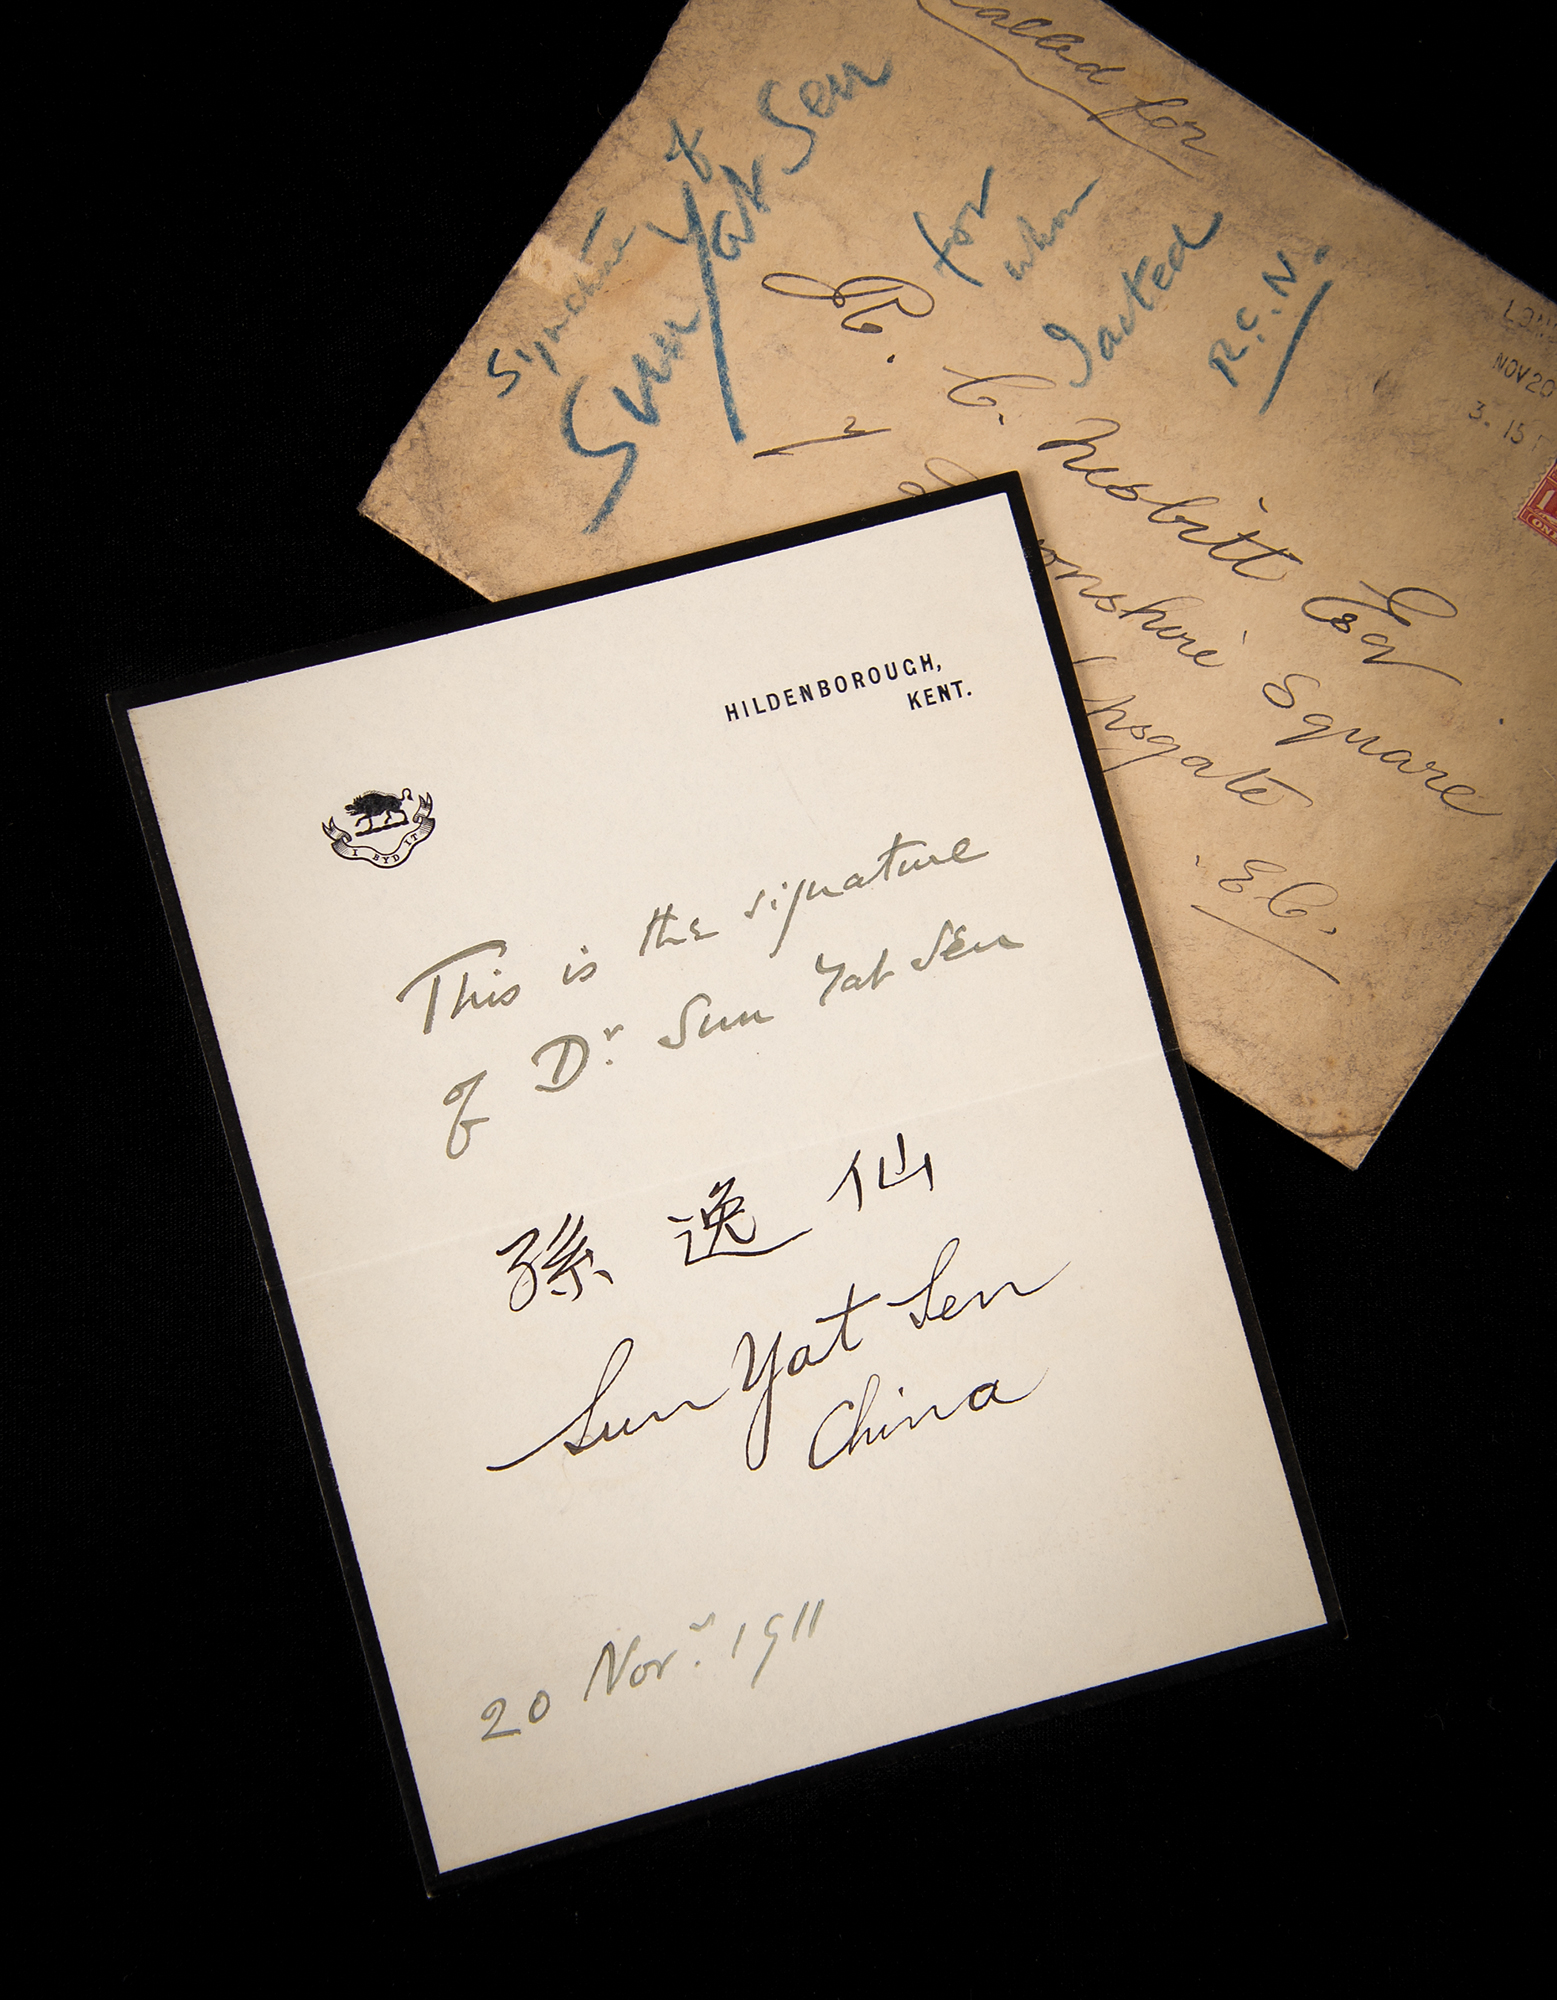 called for
Signature of
Sun Yat Sen
for
whom
I acted
R.C.N.
R. C. Nesbitt Esq
7
onshire Square
psgate
E C.
NOV 20
3. 15
1
ON
HILDENBOROUGH,
KENT.
I BYD IT
This is the signature
of Dr. Sun Yat Sen
孫 逸 仙
Sun Yat Sen
China
20 Novr. 1911